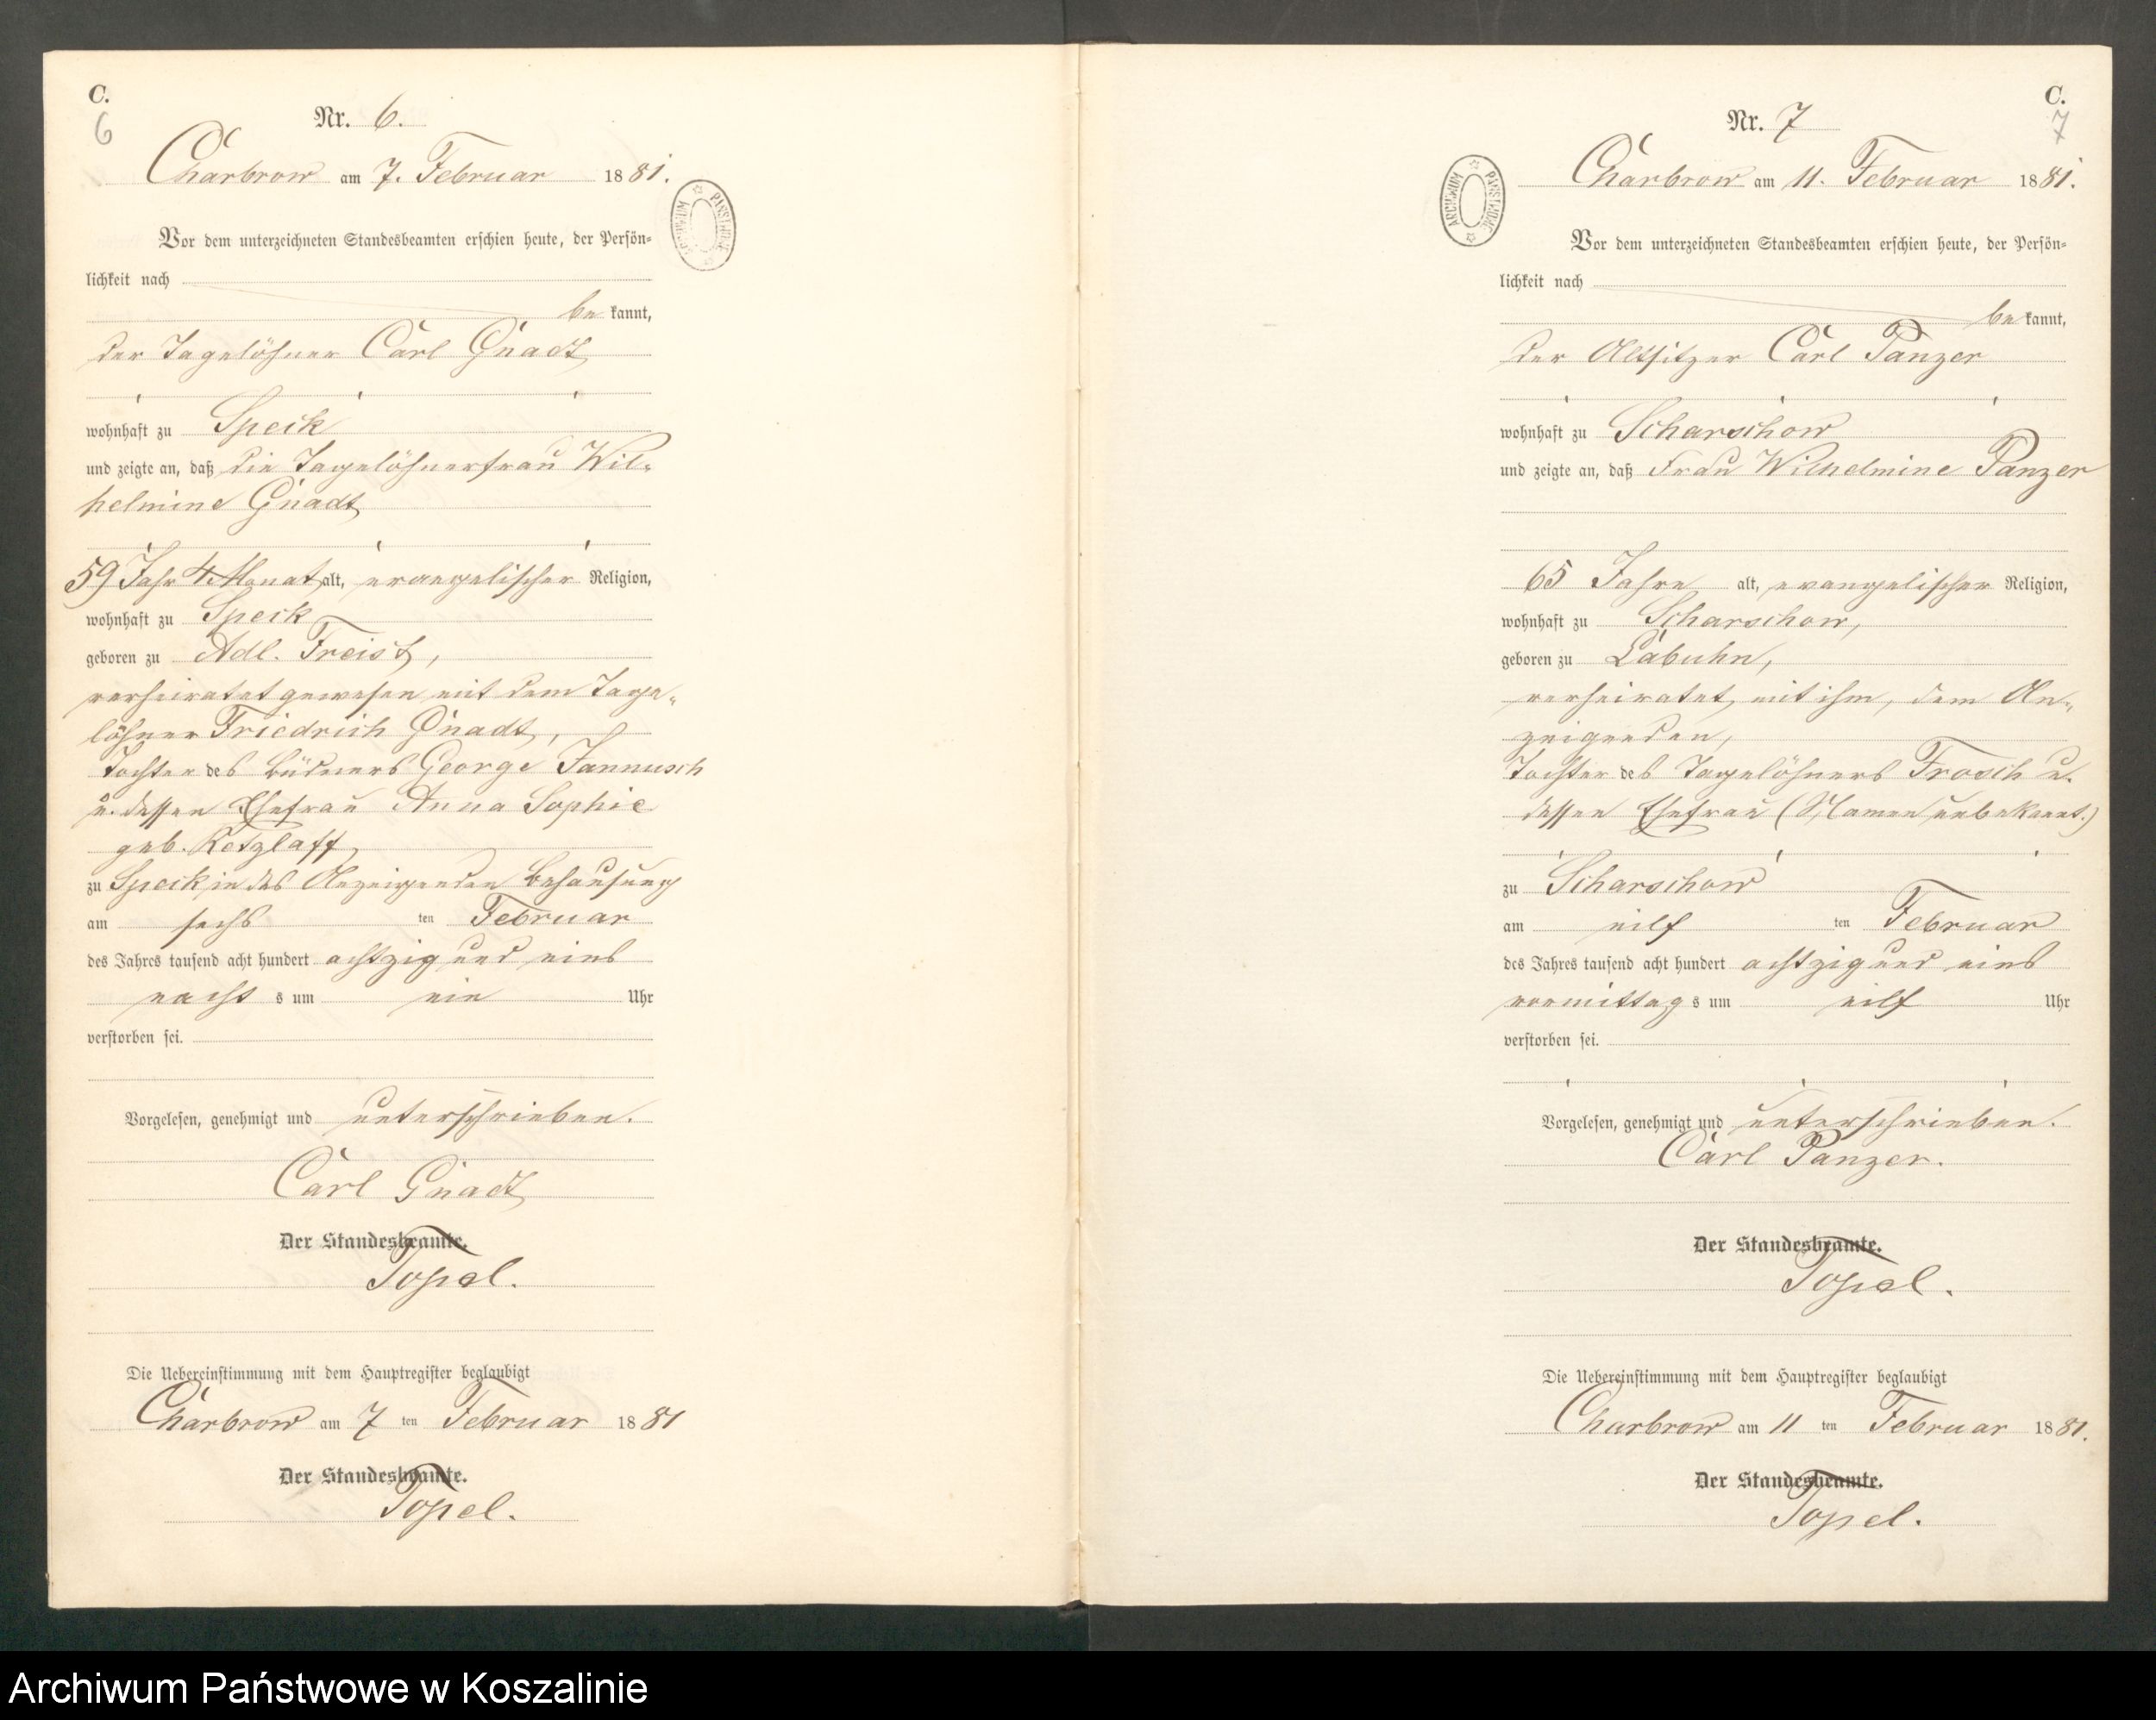 C.
6
Nr. 6.
Charbrow am 7. Februar 1881.
ARCHIWUM PAŃSTWOWE
Vor dem unterzeichneten Standesbeamten erschien heute, der Persön-
lichkeit nach
be kannt,
der Tagelöhner Carl Gnadt
wohnhaft zu Speck
und zeigte an, daß die Tagelöhnerfrau Wil-
helmine Gnadt
59 Jahr 4 Monat alt, evangelischer Religion,
wohnhaft zu Speck
geboren zu Adl. Freist,
verheiratet gewesen mit dem Tage-
löhner Friedrich Gnadt,
Tochter des Büdners George Jannusch
u. dessen Ehefrau Anna Sophie
geb. Retzlaff
zu Speck, in des Anzeigenden Behausung
am sechs ten Februar
des Jahres tausend acht hundert achtzig und eins
nacht s um ein Uhr
verstorben sei.
Vorgelesen, genehmigt und unterschrieben.
Carl Gnadt
Der Standesbeamte.
Topel.
Die Uebereinstimmung mit dem Hauptregister beglaubigt
Charbrow am 7 ten Februar 1881
Der Standesbeamte.
Topel.
C.
7
Nr. 7
Charbrow am 11. Februar 1881.
ARCHIWUM PAŃSTWOWE
Vor dem unterzeichneten Standesbeamten erschien heute, der Persön-
lichkeit nach
be kannt,
der Altsitzer Carl Panzer
wohnhaft zu Scharschow
und zeigte an, daß Frau Wilhelmine Panzer
65 Jahre alt, evangelischer Religion,
wohnhaft zu Scharschow,
geboren zu Labuhn,
verheiratet mit ihm, dem An-
zeigenden,
Tochter des Tagelöhners Frosch u.
dessen Ehefrau (Namen unbekannt.)
zu Scharschow
am eilf ten Februar
des Jahres tausend acht hundert achtzig und eins
vormittag s um eilf Uhr
verstorben sei.
Vorgelesen, genehmigt und unterschrieben.
Carl Panzer.
Der Standesbeamte.
Topel.
Die Uebereinstimmung mit dem Hauptregister beglaubigt
Charbrow am 11 ten Februar 1881.
Der Standesbeamte.
Topel.
Archiwum Państwowe w Koszalinie